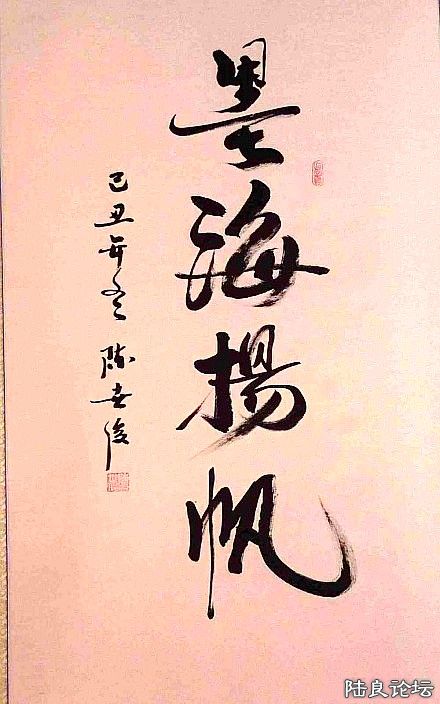 墨海揚帆
己丑年冬 陈世俊
陆良论坛